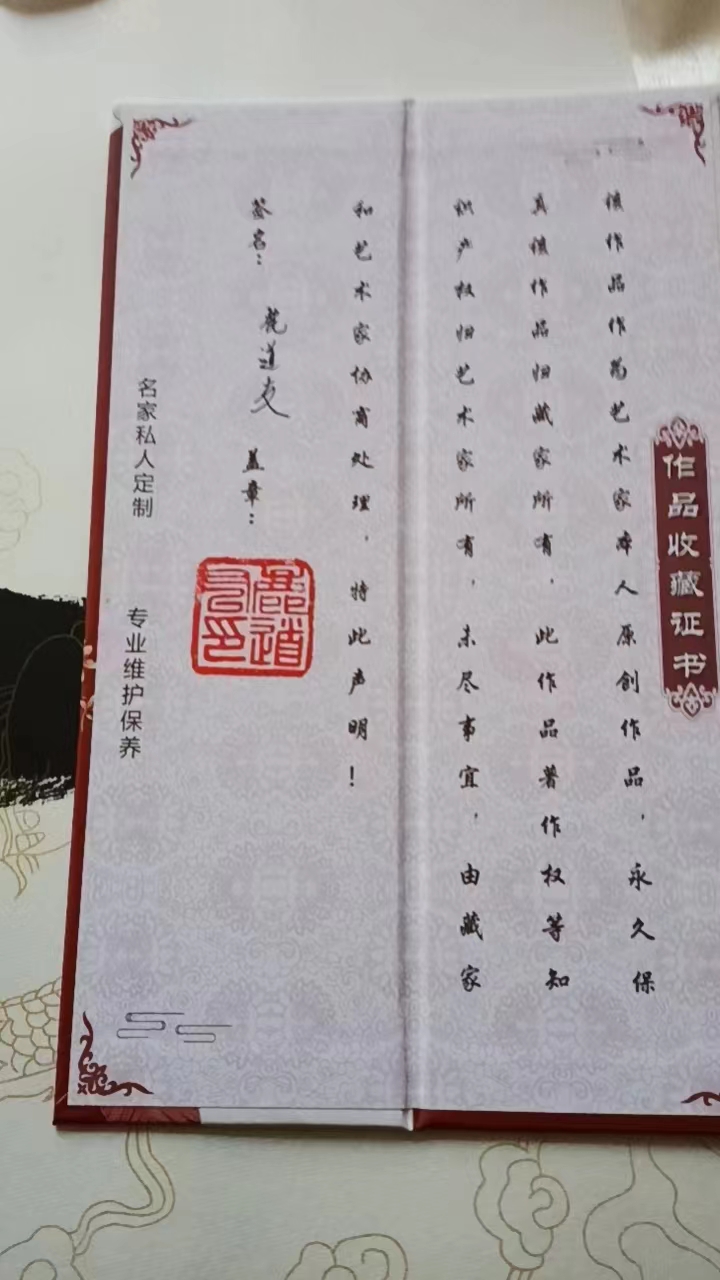 作品收藏证书
该作品作为艺术家本人原创作品，永久保
真该作品归藏家所有，此作品著作权等知
识产权归艺术家所有，未尽事宜，由藏家
和艺术家协商处理，特此声明！
签名：道 盖章：
道印
名家私人定制 专业维护保养